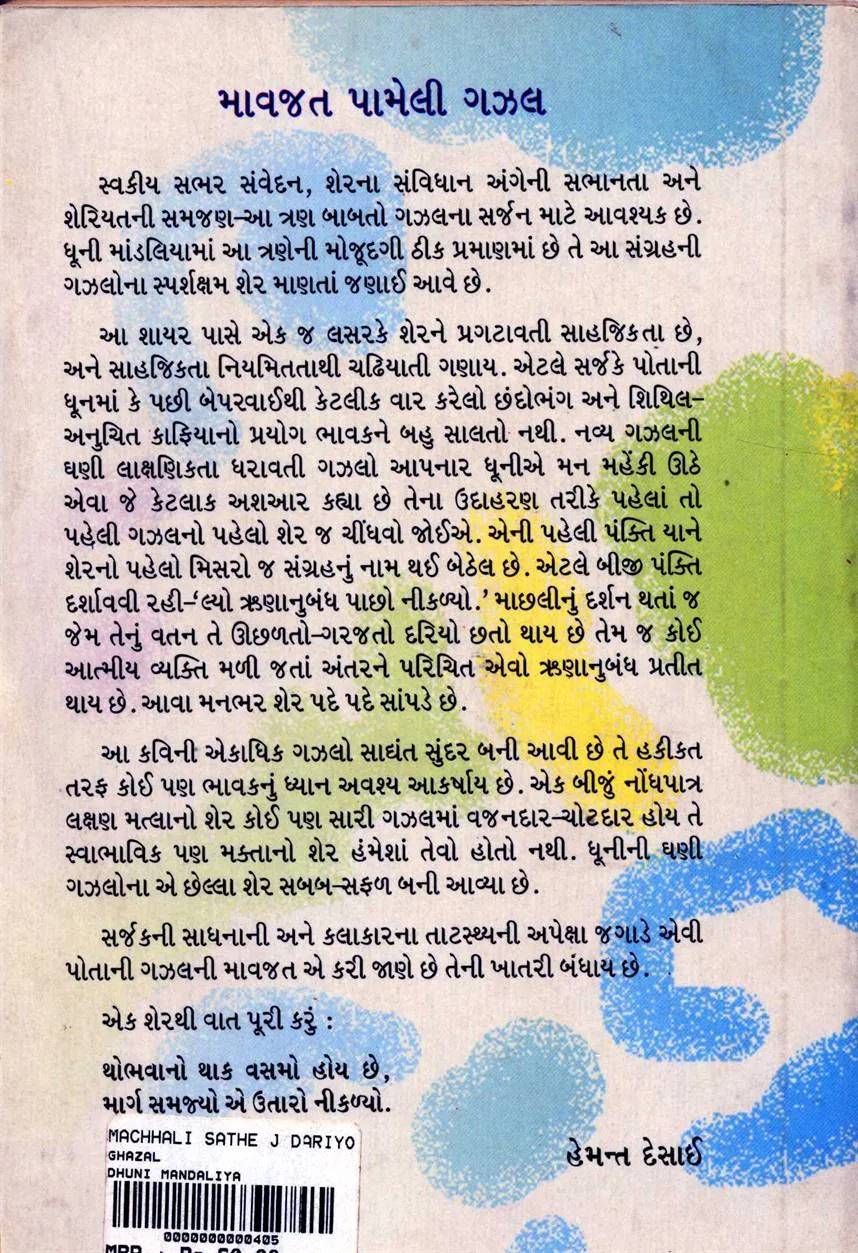 માવજત પામેલી ગઝલ
સ્વકીય સભર સંવેદન, શેરના સંવિધાન અંગેની સભાનતા અને
શેરિયતની સમજણ-આ ત્રણ બાબતો ગઝલના સર્જન માટે આવશ્યક છે.
ધૂની માંડલિયામાં આ ત્રણેની મોજૂદગી ઠીક પ્રમાણમાં છે તે આ સંગ્રહની
ગઝલોના સ્પર્શક્ષમ શેર માણતાં જણાઈ આવે છે.
આ શાયર પાસે એક જ લસરકે શેરને પ્રગટાવતી સાહજિકતા છે,
અને સાહજિકતા નિયમિતતાથી ચઢિયાતી ગણાય. એટલે સર્જકે પોતાની
ધૂનમાં કે પછી બેપરવાઈથી કેટલીક વાર કરેલો છંદોભંગ અને શિથિલ-
અનુચિત કાફિયાનો પ્રયોગ ભાવકને બહુ સાલતો નથી. નવ્ય ગઝલની
ઘણી લાક્ષણિકતા ધરાવતી ગઝલો આપનાર ધૂનીએ મન મહેંકી ઊઠે
એવા જે કેટલાક અશઆર કહ્યા છે તેના ઉદાહરણ તરીકે પહેલાં તો
પહેલી ગઝલનો પહેલો શેર જ ચીંધવો જોઈએ. એની પહેલી પંક્તિ યાને
શેરનો પહેલો મિસરો જ સંગ્રહનું નામ થઈ બેઠેલ છે. એટલે બીજી પંક્તિ
દર્શાવવી રહી-‘લ્યો ઋણાનુબંધ પાછો નીકળ્યો.’ માછલીનું દર્શન થતાં જ
જેમ તેનું વતન તે ઊછળતો-ગરજતો દરિયો છતો થાય છે તેમ જ કોઈ
આત્મીય વ્યક્તિ મળી જતાં અંતરને પરિચિત એવો ઋણાનુબંધ પ્રતીત
થાય છે. આવા મનભર શેર પદે પદે સાંપડે છે.
આ કવિની એકાધિક ગઝલો સાદ્યંત સુંદર બની આવી છે તે હકીકત
તરફ કોઈ પણ ભાવકનું ધ્યાન અવશ્ય આકર્ષાય છે. એક બીજું નોંધપાત્ર
લક્ષણ મત્લાનો શેર કોઈ પણ સારી ગઝલમાં વજનદાર-ચોટદાર હોય તે
સ્વાભાવિક પણ મક્તાનો શેર હંમેશાં તેવો હોતો નથી. ધૂનીની ઘણી
ગઝલોના એ છેલ્લા શેર સબબ-સફળ બની આવ્યા છે.
સર્જકની સાધનાની અને કલાકારના તાટસ્થ્યની અપેક્ષા જગાડે એવી
પોતાની ગઝલની માવજત એ કરી જાણે છે તેની ખાતરી બંધાય છે.
એક શેરથી વાત પૂરી કરું :
થોભવાનો થાક વસમો હોય છે,
માર્ગ સમજ્યો એ ઉતારો નીકળ્યો.
હેમન્ત દેસાઈ
MACHHALI SATHE J DARIYO
GHAZAL
DHUNI MANDALIYA
0000000000405